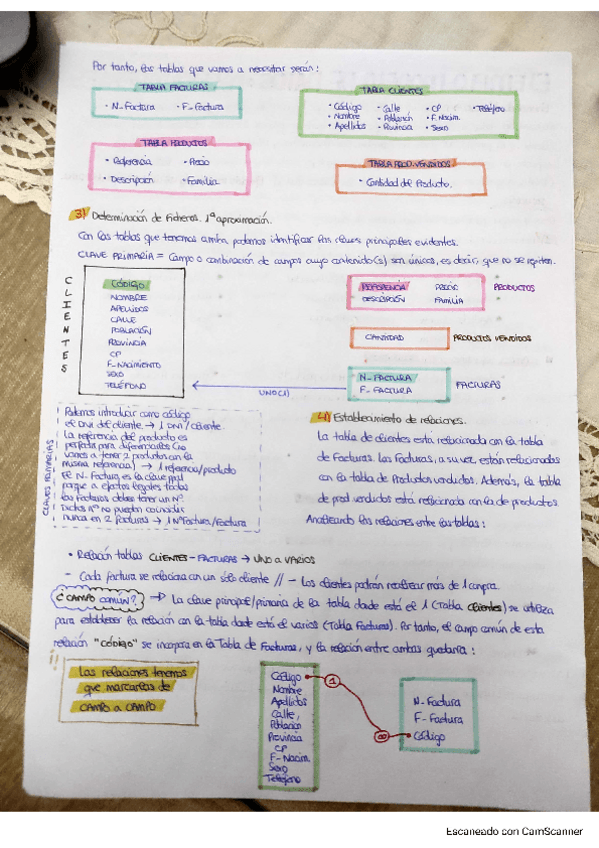 Por tanto, las tablas que vamos a necesitar serán:
TABLA FACTURAS
· N-Factura · F-Factura
TABLA CLIENTES
· Código · Calle · CP · Teléfono
· Nombre · Población · F. Nacim.
· Apellidos · Provincia · Sexo
TABLA PRODUCTOS
· Referencia · Precio
· Descripción · Familia
TABLA PROD. VENDIDOS
· Cantidad del Producto.
3) Determinación de Ficheros. 1ª aproximación.
Con las tablas que tenemos arriba, podemos identificar las claves principales evidentes.
CLAVE PRIMARIA = Campo o combinación de campos cuyo contenido(s) son únicos, es decir, que no se repiten.
CLIENTES
CÓDIGO
NOMBRE
APELLIDOS
CALLE
POBLACIÓN
PROVINCIA
CP
F-NACIMIENTO
SEXO
TELÉFONO
REFERENCIA PRECIO
DESCRIPCIÓN FAMILIA
PRODUCTOS
CANTIDAD
PRODUCTOS VENDIDOS
N-FACTURA
F-FACTURA
FACTURAS
UNO(1)
CLAVES PRIMARIAS
Podemos introducir como código
el DNI del cliente → 1 DNI/cliente.
La referencia del producto es
perfecta para diferenciarlos (no
vamos a tener 2 productos con la
misma referencia) → 1 referencia/producto
El N-Factura, es la clave ppal
porque a efectos legales todas
las facturas deben tener un Nº.
Dichos nº no pueden coincidir
nunca en 2 facturas → 1 NºFactura/Factura
4) Establecimiento de relaciones.
La tabla de clientes está relacionada con la tabla
de Facturas. Las facturas, a su vez, están relacionadas
con la tabla de Productos vendidos. Además, la tabla
de prod. vendidos está relacionada con la de productos
Analizando las relaciones entre las tablas:
· Relación tablas CLIENTES - FACTURAS → UNO A VARIOS
- Cada factura se relaciona con un sólo cliente // - Los clientes podrán realizar más de 1 compra.
¿CAMPO común? → La clave principal/primaria de la tabla donde está el 1 (Tabla Clientes) se utiliza
para establecer la relación con la tabla donde está el varios (Tabla Facturas). Por tanto, el campo común de esta
relación "código" se incorpora en la Tabla de Facturas, y la relación entre ambas quedaría:
!!
Las relaciones tenemos
que marcarlas de
CAMPO A CAMPO
Código
Nombre
Apellidos
Calle
Población
Provincia
CP
F-Nacim.
Sexo
Teléfono
1
∞
N-Factura
F-Factura
Código
Escaneado con CamScanner